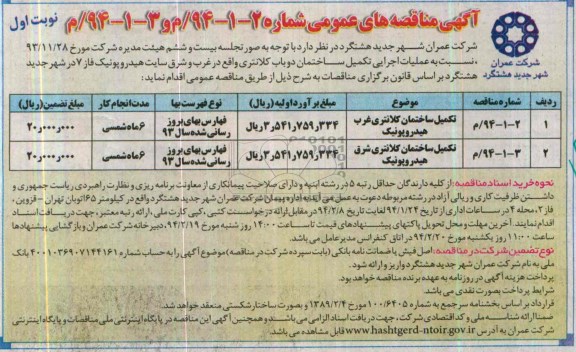 آگهی مناقصه های عمومی شماره ۲-۱-۹۴/م و ۳-۱-۹۴/م
نوبت اول
شرکت عمران
شهر جدید هشتگرد
شرکت عمران شهر جدید هشتگرد در نظر دارد با توجه به صورتجلسه بیست و ششم هیئت مدیره شرکت مورخ ۹۳/۱۱/۲۸
، نسبت به عملیات اجرایی تکمیل ساختمان دو باب کلانتری واقع در غرب و شرق سایت هیدروپونیک فاز ۷ در شهر جدید
هشتگرد بر اساس قانون برگزاری مناقصات به شرح ذیل از طریق مناقصه عمومی اقدام نماید:
ردیف شماره مناقصه موضوع مبلغ برآورد اولیه (ریال) نوع فهرست بها مدت انجام کار مبلغ تضمین (ریال)
۱ ۲-۱-۹۴/م تکمیل ساختمان کلانتری غرب هیدروپونیک ۳٫۵۴۱٫۷۵۹٫۳۳۴ ریال فهارس بهای بروز رسانی شده سال ۹۳ ۶ ماه شمسی ۲۰۰٫۰۰۰٫۰۰۰
۲ ۳-۱-۹۴/م تکمیل ساختمان کلانتری شرق هیدروپونیک ۳٫۵۴۱٫۷۵۹٫۳۳۴ ریال فهارس بهای بروز رسانی شده سال ۹۳ ۶ ماه شمسی ۲۰۰٫۰۰۰٫۰۰۰
نحوه خرید اسناد مناقصه: از کلیه دارندگان حداقل رتبه ۵ در رشته ابنیه و دارای صلاحیت پیمانکاری از معاونت برنامه ریزی و نظارت راهبردی ریاست جمهوری و
داشتن ظرفیت کاری و ریالی آزاد در رشته مربوطه دعوت به عمل می آید به اداره پیمان شرکت عمران شهر جدید هشتگرد واقع در کیلومتر ۶۵ اتوبان تهران - قزوین،
فاز ۲، محله ۴ در ساعات اداری از تاریخ ۹۴/۱/۲۴ لغایت تاریخ ۹۴/۲/۸ در مقابل ارائه درخواست کتبی، کپی کارت ملی، ارائه رتبه معتبر، جهت دریافت اسناد
اقدام نمایند. آخرین مهلت و محل تحویل پاکتهای پیشنهادهای قیمت تا ساعت ۱۴:۰۰ روز شنبه مورخ ۹۴/۲/۱۹، دبیرخانه شرکت عمران و بازگشایی پیشنهادها
ساعت ۱۱:۰۰ روز یکشنبه مورخ ۹۴/۲/۲۰ در اتاق کنفرانس مدیرعامل می باشد.
نوع تضمین شرکت در مناقصه: اصل فیش یا ضمانت نامه بانکی (بابت سپرده شرکت در مناقصه) موضوع آگهی را به حساب شماره ۴۰۰۱۰۳۶۹۰۷۱۴۴۱۶۱ بانک
ملی به نام شرکت عمران شهر جدید هشتگرد واریز و ارائه شود.
پرداخت هزینه آگهی در روزنامه به عهده برنده مناقصه خواهد بود.
شرایط پرداخت بصورت نقدی می باشد.
قرارداد بر اساس بخشنامه سرجمع به شماره ۱۰۰/۶۴۰۵ مورخ ۱۳۸۹/۲/۴ و بصورت ساختار شکستی منعقد خواهد شد.
ضمنا ارائه شناسه ملی و کد اقتصادی شرکت، جهت دریافت اسناد الزامی می باشند و همچنین آگهی این مناقصه در پایگاه اینترنتی ملی مناقصات و پایگاه اینترنتی
شرکت عمران به آدرس www.hashtgerd-ntoir.gov.ir قابل مشاهده می باشد.